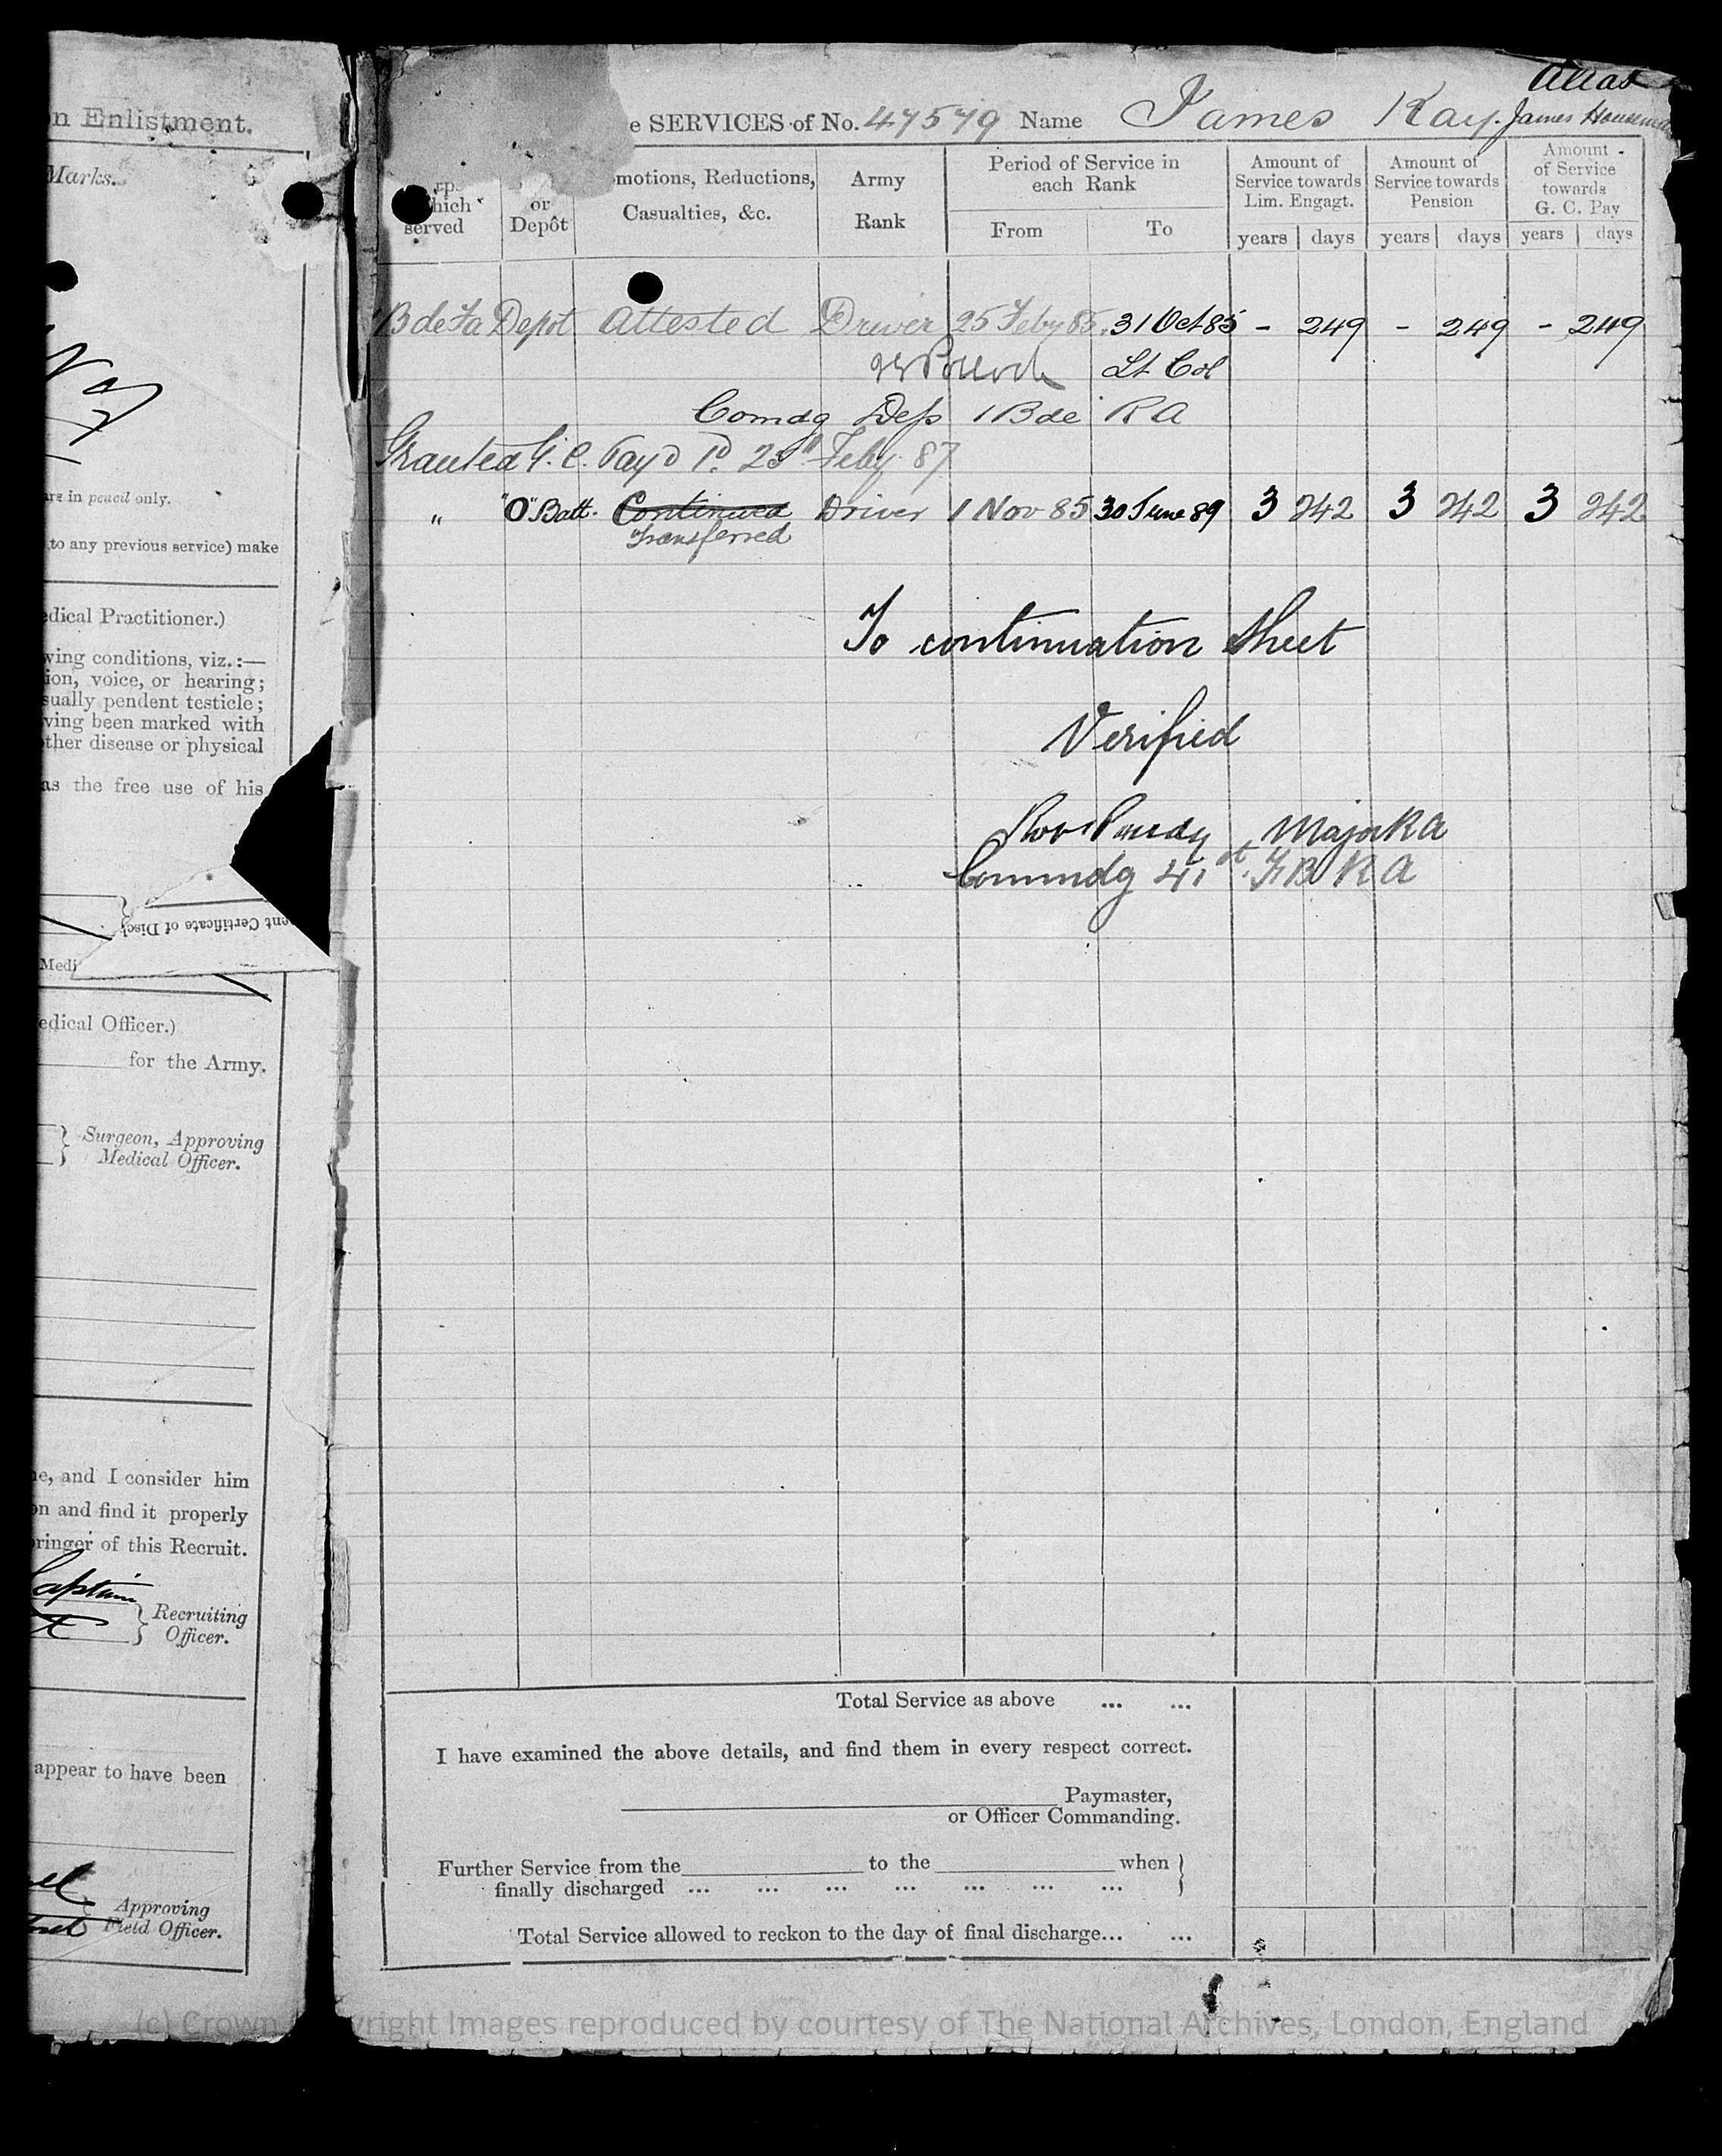 n Enlistment.
Marks.
are in pencil only.
to any previous service) make
edical Practitioner.)
wing conditions, viz.:—
ion, voice, or hearing;
sually pendent testicle;
ving been marked with
other disease or physical
as the free use of his
ent Certificate of Disch
Medi
edical Officer.)
for the Army.
Surgeon, Approving
Medical Officer.
ne, and I consider him
on and find it properly
bringer of this Recruit.
Captain
Recruiting
Officer.
appear to have been
Approving
Field Officer.
Alias
e SERVICES of No. 47579 Name James Kay. James Houseman
which served
or Depôt
motions, Reductions, Casualties, &c.
Army Rank
Period of Service in each Rank
From To
Amount of Service towards Lim. Engagt.
years days
Amount of Service towards Pension
years days
Amount of Service towards G. C. Pay
years days
Bde Fa Depot Attested Driver 25 Feby 85. 31 Oct 85 - 249 - 249 - 249
Lt Col
Comdg Dep 1 Bde RA
Granted G. C. Pay @ 1d. 25th Feby 87
" "O" Batt. Continued Driver 1 Nov 85 30 June 89 3 242 3 242 3 242
Transferred
To continuation sheet
Verified
Major RA
Commdg 41st F B R A
Total Service as above ... ...
I have examined the above details, and find them in every respect correct.
Paymaster,
or Officer Commanding.
Further Service from the to the when
finally discharged ... ... ... ... ... ... ...
Total Service allowed to reckon to the day of final discharge... ...
(c) Crown yright Images reproduced by courtesy of The National Archives, London, England